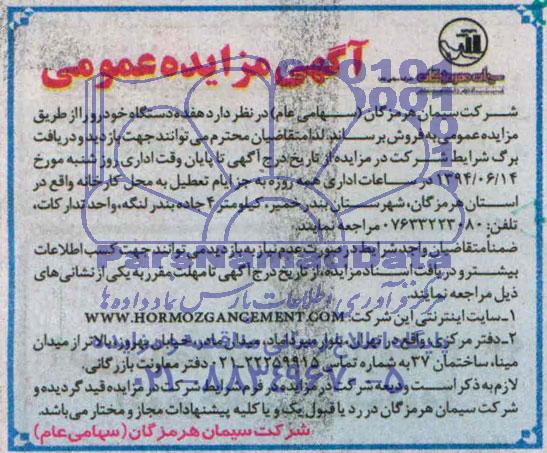 آگهی مزایده عمومی
شرکت سیمان هرمزگان (سهامی عام) در نظر دارد هفده دستگاه خودرو را از طریق
مزایده عمومی به فروش برساند. لذا متقاضیان محترم می توانند جهت بازدید و دریافت
برگ شرایط شرکت در مزایده از تاریخ درج آگهی تا پایان وقت اداری روز شنبه مورخ
۱۳۹۴/۰۶/۱۴ در ساعات اداری همه روزه به جز ایام تعطیل به محل کارخانه واقع در
استان هرمزگان، شهرستان بندر خمیر، کیلومتر ۴ جاده بندر لنگه، واحد تدارکات،
تلفن: ۰۷۶۳۳۲۲۳۰۸۰ مراجعه نمایند.
ضمناً متقاضیان واجد شرایط در صورت عدم نیاز به بازدید می توانند جهت کسب اطلاعات
بیشتر و دریافت اسناد مزایده، از تاریخ درج آگهی تا مهلت مقرر به یکی از نشانی های
ذیل مراجعه نمایند.
۱-سایت اینترنتی این شرکت: WWW.HORMOZGANCEMENT.COM
۲-دفتر مرکزی واقع در تهران، بلوار میرداماد، میدان مادر، خیابان بهروز، بالاتر از میدان
مینا، ساختمان ۳۷ به شماره تماس ۲۲۲۵۹۹۱۸-۰۲۱ دفتر معاونت بازرگانی.
لازم به ذکر است ودیعه شرکت در مزایده در فرم شرایط شرکت در مزایده قید گردیده و
شرکت سیمان هرمزگان در رد یا قبول یک و یا کلیه پیشنهادات مجاز و مختار می باشد.
شرکت سیمان هرمزگان (سهامی عام)
ParsNamadData
فن آوری اطلاعات پارس نماد داده ها
۰۲۱-۸۸۳۴۹۶۷۰-۵